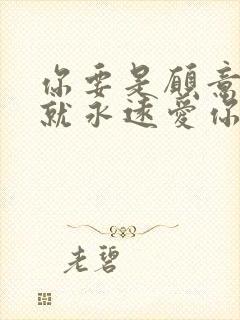 你要是願意
就永遠愛你
老碧